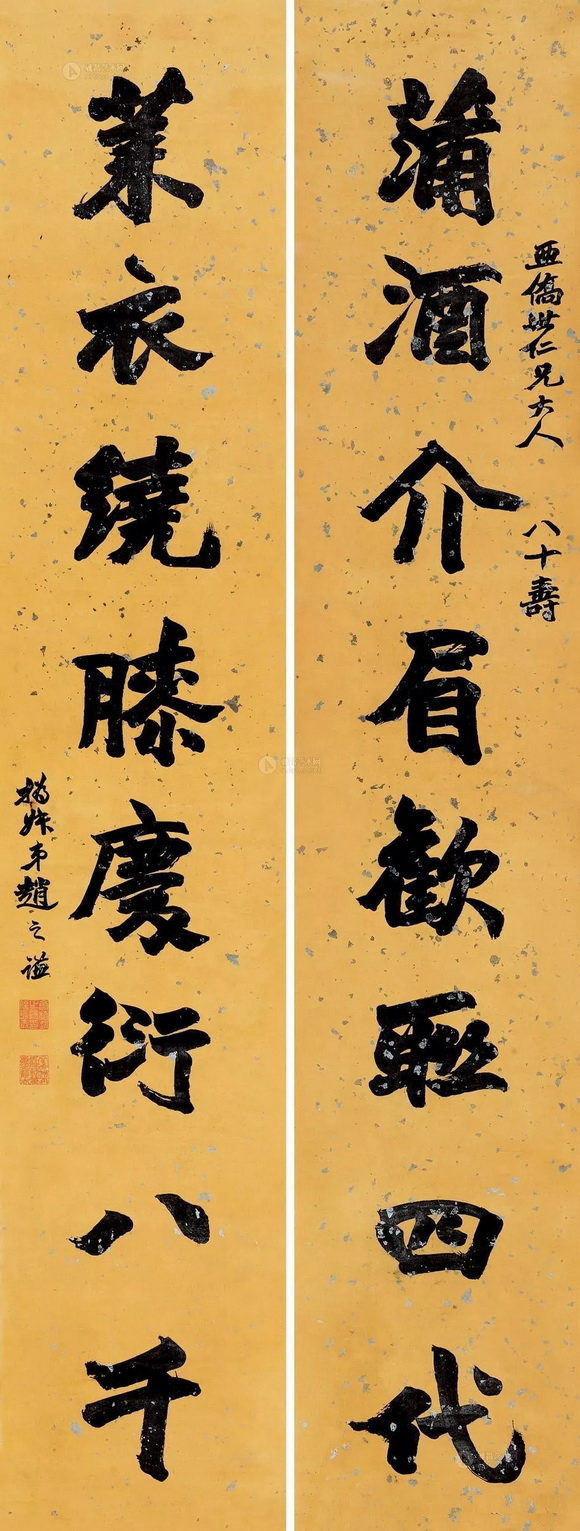 亞僑世仁兄大人 八十壽
蒲酒介眉歡聯四代
萊衣繞膝慶衍八千
撝叔弟趙之謙